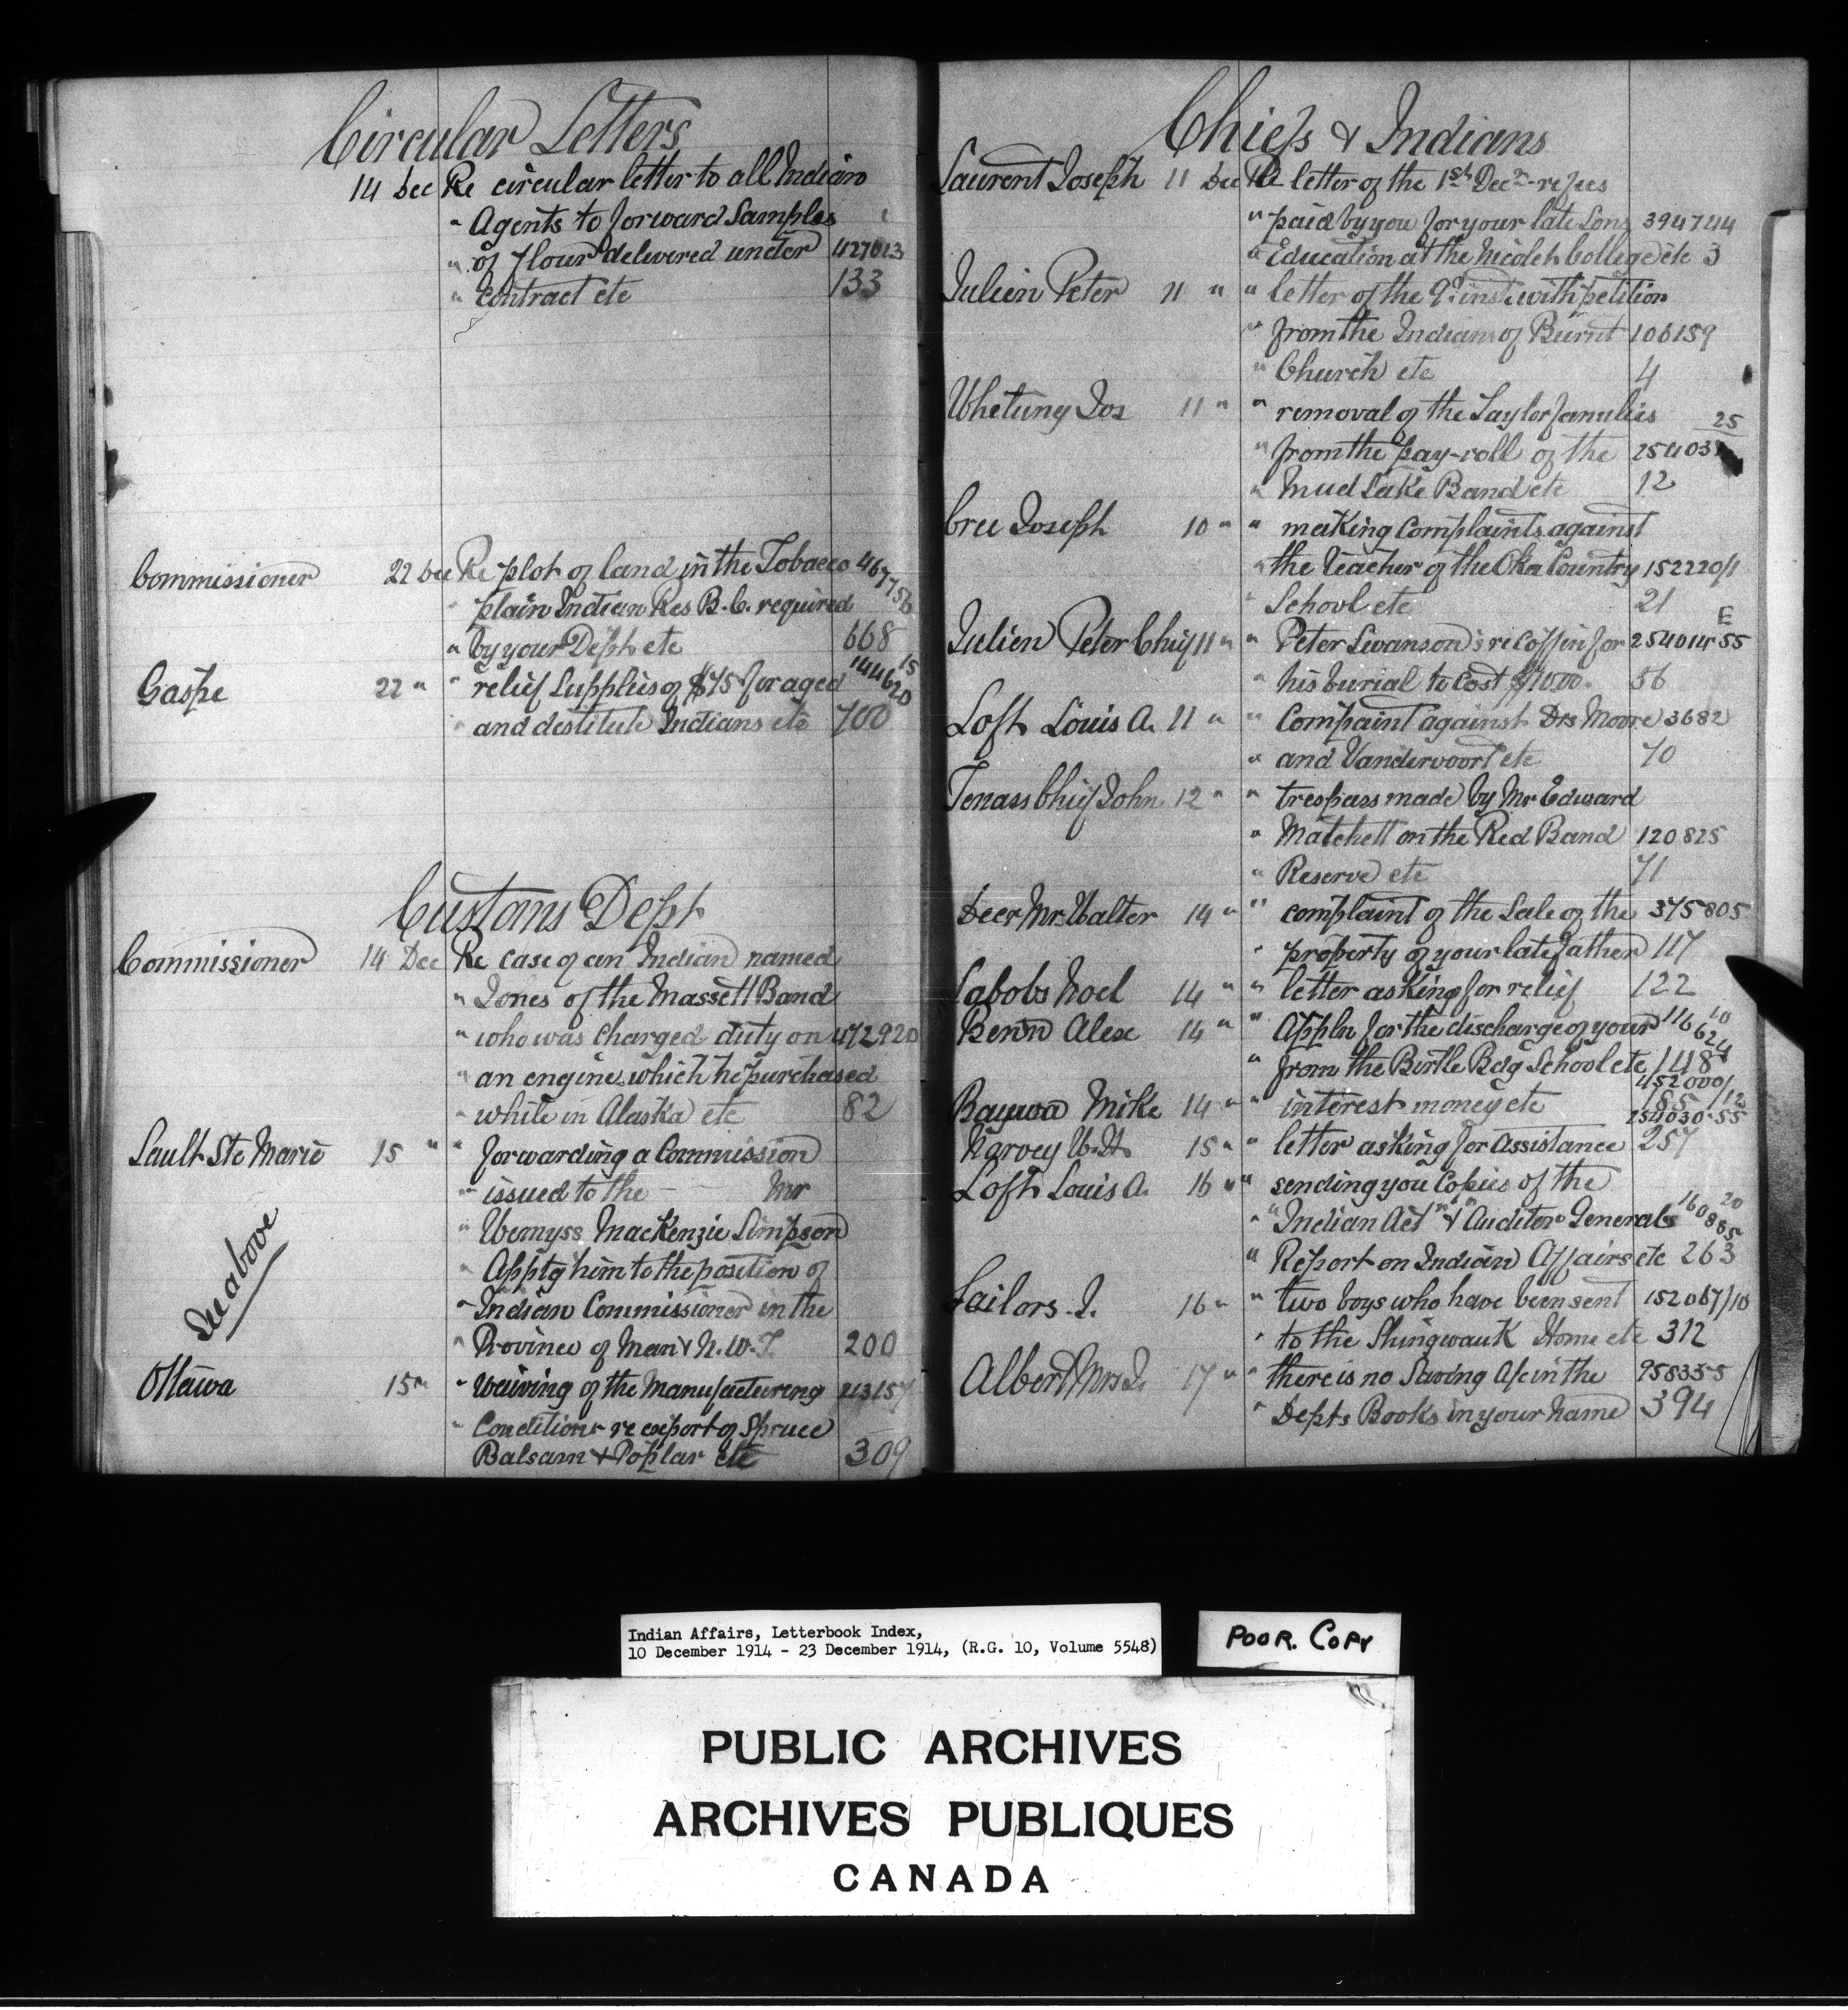 Circular Letters
14 Dec Re circular letter to all Indian
" Agents to forward Samples
" of flour delivered under 427013
" contract etc 133
Commissioner 22 Dec Re plot of land in the Tobacco 467756
" plain Indian Res B.C. required
" by your Dept etc 668
Gaspe 22 " " relief supplies of $75 for aged 144620 15
" and destitute Indians etc 700
Customs Dept
Commissioner 14 Dec Re case of an Indian named
" Jones of the Massett Band
" who was charged duty on 472920
" an engine which he purchased
" while in Alaska etc 82
Sault Ste Marie 15 " " forwarding a Commission
" issued to the Mr
" Wemyss MacKenzie Simpson
" Apptg him to the position of
" Indian Commissioner in the
See above
" Province of Man & N.W.T. 200
Ottawa 15 " " waiving of the Manufactureing 213157
" Conditions re export of Spruce
Balsam & Poplar etc 309
Chiefs & Indians
Laurent Joseph 11 Dec Re letter of the 1st Decr - re fees
" paid by you for your late Sons 394744
" Education at the Nicolet College etc 3
Julien Peter 11 " " letter of the 9th inst with petition
" from the Indians of Burnt 106159
" Church etc 4
Whetung Jos 11 " " removal of the Taylor families
25
" from the pay-roll of the 25403
" Mud Lake Band etc 12
Cree Joseph 10 " " making Complaints against
" the Teacher of the Oka Country 152220/1
" School etc 21
Julien Peter Chief 11 " " Peter Swanson's re coffin for 254014 55 E
" his burial to cost $10.00. 56
Loft Louis A. 11 " " Compaint against Drs Moore 3682
" and Vandervoort etc 70
Tenass Chief John 12 " " trespass made by Mr Edward
" Matchett on the Red Band 120825
" Reserve etc 71
Deer Mrs Walter 14 " " complaint of the Sale of the 375805
" property of your late father 117
Labobs Noel 14 " " letter asking for relief 122
Benn Alex 14 " " Appln for the discharge of your 116624 10
" from the Birtle Bdg School etc 148
452000/12
Baywa Mike 14 " " interest money etc 185
254030-55
Harvey W.H. 15 " " letter asking for Assistance 257
Loft Louis A. 16 " " sending you Copies of the
" "Indian Act" & Auditor Generals 160885 20
" Report on Indian Affairs etc 263
Sailors J. 16 " " two boys who have been sent 152067/10
" to the Shingwauk Home etc 312
Albert Mrs J. 17 " " there is no Saving A/c in the 958355
" Depts Books in your name 394
Indian Affairs, Letterbook Index,
10 December 1914 - 23 December 1914, (R.G. 10, Volume 5548)
POOR. COPY
PUBLIC ARCHIVES
ARCHIVES PUBLIQUES
CANADA